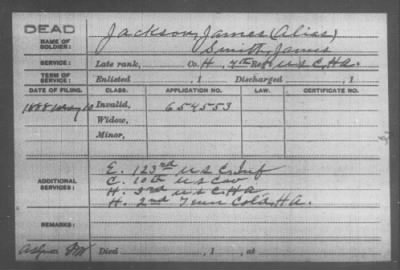 DEAD
NAME OF SOLDIER: Jackson, James (Alias)
Smith, James
SERVICE: Late rank, Co. H, 7th Reg't U S C. H A.
TERM OF SERVICE: Enlisted , 1 Discharged , 1
DATE OF FILING. CLASS. APPLICATION NO. LAW. CERTIFICATE NO.
1888 Invalid, 654553
Widow,
Minor,
ADDITIONAL SERVICES: E. 123rd U S C. Inf
C. 10th U S Cav
H. 3rd U S C. H A
H. 2nd Tenn Cold, H A.
REMARKS:
Died , 1 , at